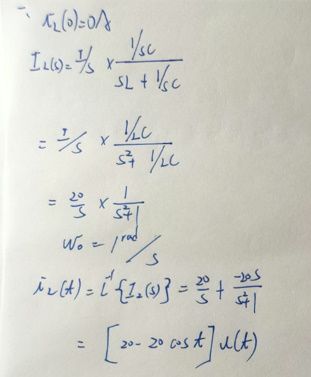 ∵ iL(0)=0A
IL(s)= I/s × (1/sC)/(sL + 1/sC)
= I/s × (1/LC)/(s²+ 1/LC)
= 20/s × 1/(s²+1)
ω₀ = 1 rad/s
iL(t)= L⁻¹{IL(s)} = 20/s + -20s/(s²+1)
= [20-20 cos t] u(t)